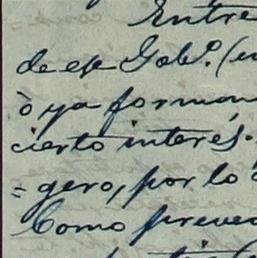 Entre
de ese Gob.º (en
ò ya forman
cierto interés.
=gero, por lo
Como preve